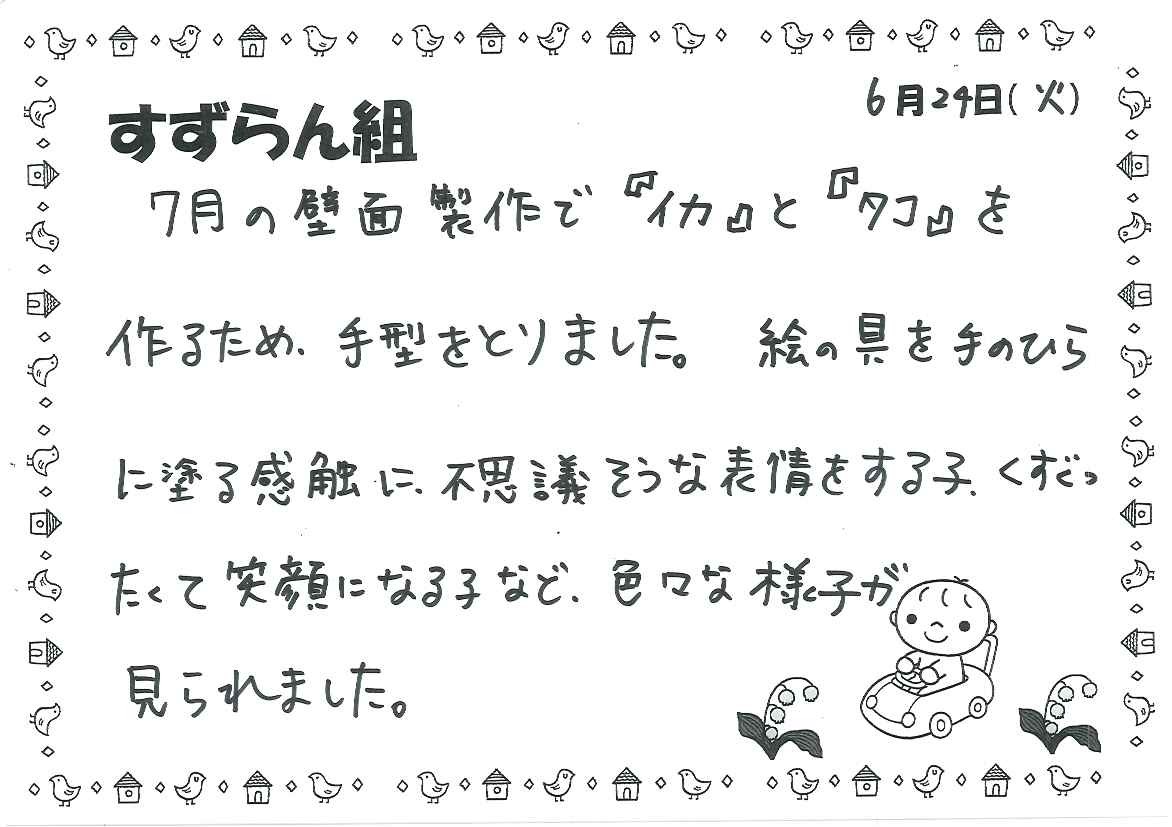 6月24日(火)
すずらん組
7月の壁面製作で『イカ』と『タコ』を
作るため、手型をとりました。 絵の具を手のひら
に塗る感触に、不思議そうな表情をする子、くすぐっ
たくて笑顔になる子など、色々な様子が
見られました。